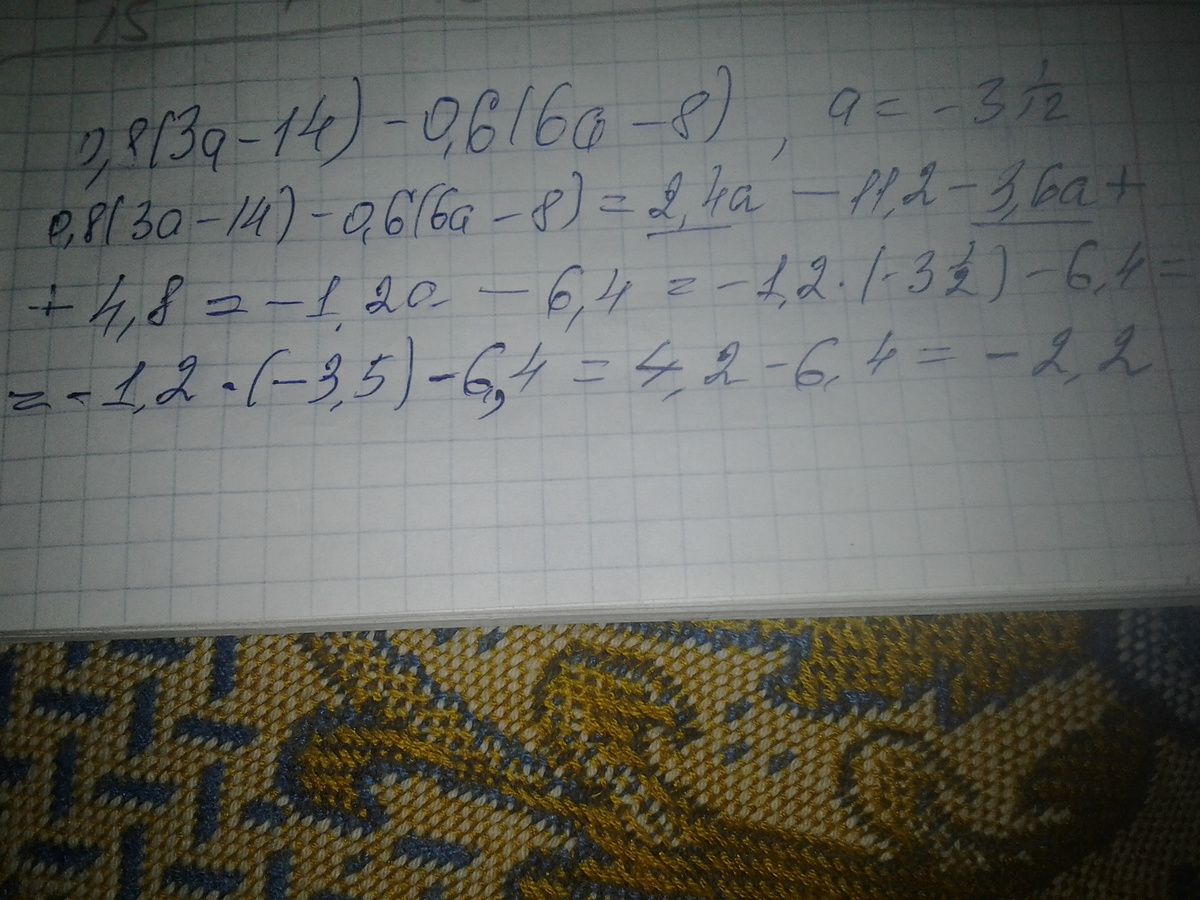 15
0,8(3a-14)-0,6(6a-8), a=-3 1/2
0,8(3a-14)-0,6(6a-8)=2,4a-11,2-3,6a+
+4,8=-1,2a-6,4=-1,2·(-3 1/2)-6,4=
=-1,2·(-3,5)-6,4=4,2-6,4=-2,2